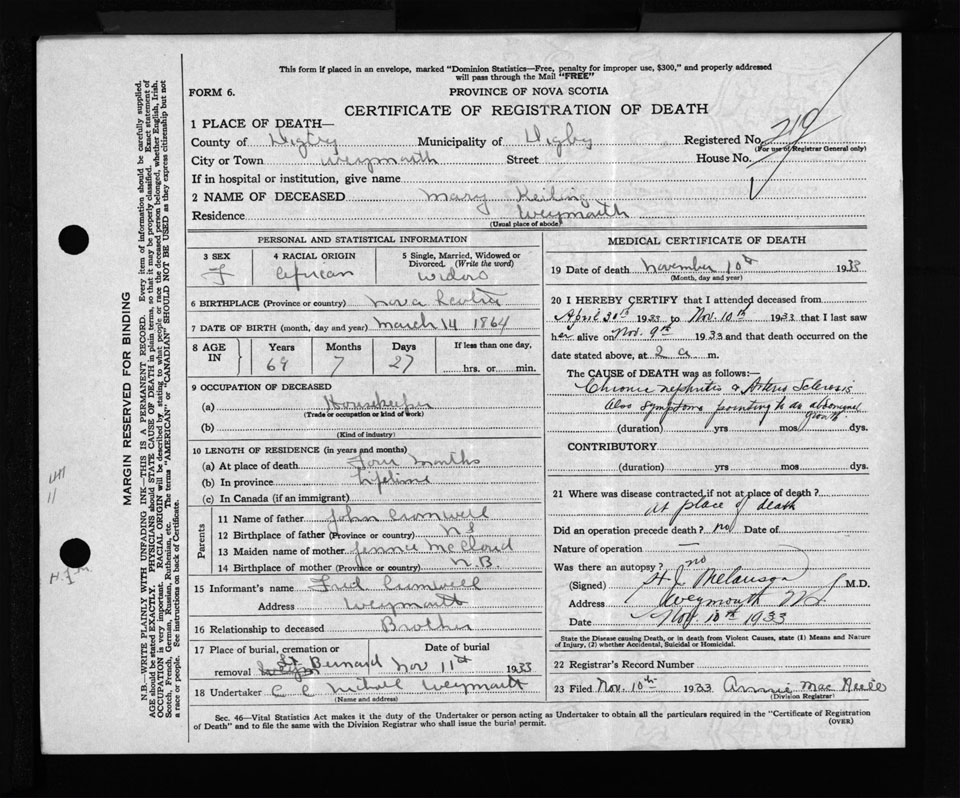 This form if placed in an envelope, marked "Dominion Statistics—Free, penalty for improper use, $300," and properly addressed
will pass through the Mail "FREE"
FORM 6.
PROVINCE OF NOVA SCOTIA
CERTIFICATE OF REGISTRATION OF DEATH
1 PLACE OF DEATH—
County of Digby Municipality of Digby Registered No. 219
(For use of Registrar General only)
City or Town Weymouth Street House No.
If in hospital or institution, give name
2 NAME OF DECEASED Mary Keiling
Residence Weymouth
(Usual place of abode)
PERSONAL AND STATISTICAL INFORMATION
3 SEX 4 RACIAL ORIGIN 5 Single, Married, Widowed or
Divorced. (Write the word)
F African Widow
6 BIRTHPLACE (Province or country) Nova Scotia
7 DATE OF BIRTH (month, day and year) March 14 1864
8 AGE IN Years Months Days If less than one day,
69 7 27 hrs. or min.
9 OCCUPATION OF DECEASED
(a) Housekeeper
(Trade or occupation or kind of work)
(b)
(Kind of industry)
10 LENGTH OF RESIDENCE (in years and months)
(a) At place of death Four months
(b) In province Lifetime
(c) In Canada (if an immigrant)
Parents
11 Name of father John Cromwell
12 Birthplace of father (Province or country) N S
13 Maiden name of mother Jennie McCloud
14 Birthplace of mother (Province or country) N.B.
15 Informant's name Fred Cromwell
Address Weymouth
16 Relationship to deceased Brother
17 Place of burial, cremation or Date of burial
removal St Bernard Nov 11th 1933
18 Undertaker Weymouth
(Name and address)
MEDICAL CERTIFICATE OF DEATH
19 Date of death November 10th 1933
(Month, day and year)
20 I HEREBY CERTIFY that I attended deceased from
April 30th 1933 to Nov. 10th 1933 that I last saw
her alive on Nov. 9th 1933 and that death occurred on the
date stated above, at 2 a m.
The CAUSE of DEATH was as follows:—
Chronic nephritis & Arterio Sclerosis
Also symptoms pointing to an abdominal
growth
(duration) yrs mos dys.
CONTRIBUTORY
(duration) yrs mos dys.
21 Where was disease contracted if not at place of death?
at place of death
Did an operation precede death? no Date of
Nature of operation —
Was there an autopsy? no
(Signed) M.D.
Address Weymouth NS
Date Nov. 10th 1933
State the Disease causing Death, or in death from Violent Causes, state (1) Means and Nature
of Injury, (2) whether Accidental, Suicidal or Homicidal.
22 Registrar's Record Number
23 Filed Nov. 10th 1933 Annie Mac
(Division Registrar)
Sec. 46—Vital Statistics Act makes it the duty of the Undertaker or person acting as Undertaker to obtain all the particulars required in the "Certificate of Registration
of Death" and to file the same with the Division Registrar who shall issue the burial permit. (OVER)
MARGIN RESERVED FOR BINDING
N.B.—WRITE PLAINLY WITH UNFADING INK—THIS IS A PERMANENT RECORD. Every item of information should be carefully supplied.
AGE should be stated EXACTLY. PHYSICIANS should STATE CAUSE OF DEATH in plain terms, so that it may be properly classified. Exact statement of
OCCUPATION is very important. RACIAL ORIGIN will be described by stating to what people or race the deceased person belonged, whether English, Irish,
Scotch, French, German, Russian, Ruthenian, etc. The terms "AMERICAN" or "CANADIAN" SHOULD NOT BE USED as they express citizenship but not
a race or people. See instructions on back of Certificate.